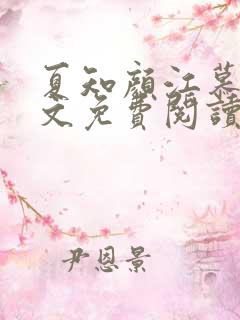 夏知顏江慕
文免費閱讀
尹恩景